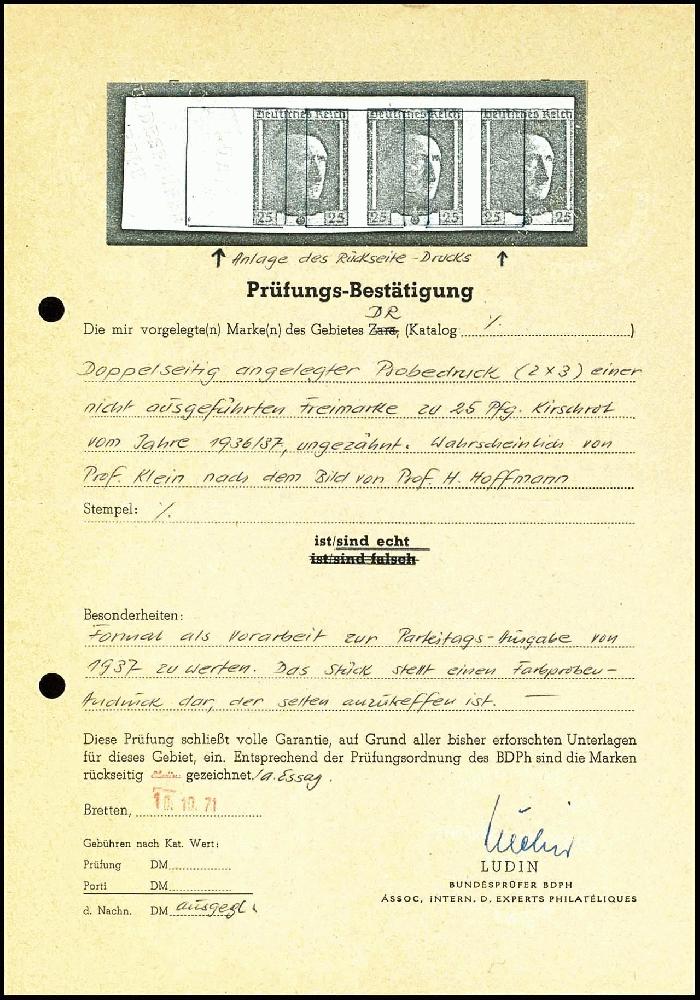 Deutsches Reich Deutsches Reich Deutsches Reich
25 25 25 25 25 25
Anlage des Rückseite-Drucks
Prüfungs-Bestätigung
DR
Die mir vorgelegte(n) Marke(n) des Gebietes Zara, (Katalog ./. )
Doppelseitig angelegter Probedruck (2×3) einer
nicht ausgeführten Freimarke zu 25 Pfg. Kirschrot
vom Jahre 1936/37, ungezähnt. Wahrscheinlich von
Prof. Klein nach dem Bild von Prof. H. Hoffmann
Stempel: ./.
ist/sind echt
ist/sind falsch
Besonderheiten:
Formal als Vorarbeit zur Parteitags-Ausgabe von
1937 zu werten. Das Stück stellt einen Farbproben-
Andruck dar, der selten anzutreffen ist. —
Diese Prüfung schließt volle Garantie, auf Grund aller bisher erforschten Unterlagen
für dieses Gebiet, ein. Entsprechend der Prüfungsordnung des BDPh sind die Marken
rückseitig gezeichnet/a. Essay.
Bretten, 10. 10. 71
Gebühren nach Kat. Wert:
Prüfung DM
Porti DM
d. Nachn. DM ausgegl.
Ludin
LUDIN
BUNDESPRÜFER BDPH
ASSOC, INTERN. D. EXPERTS PHILATÉLIQUES